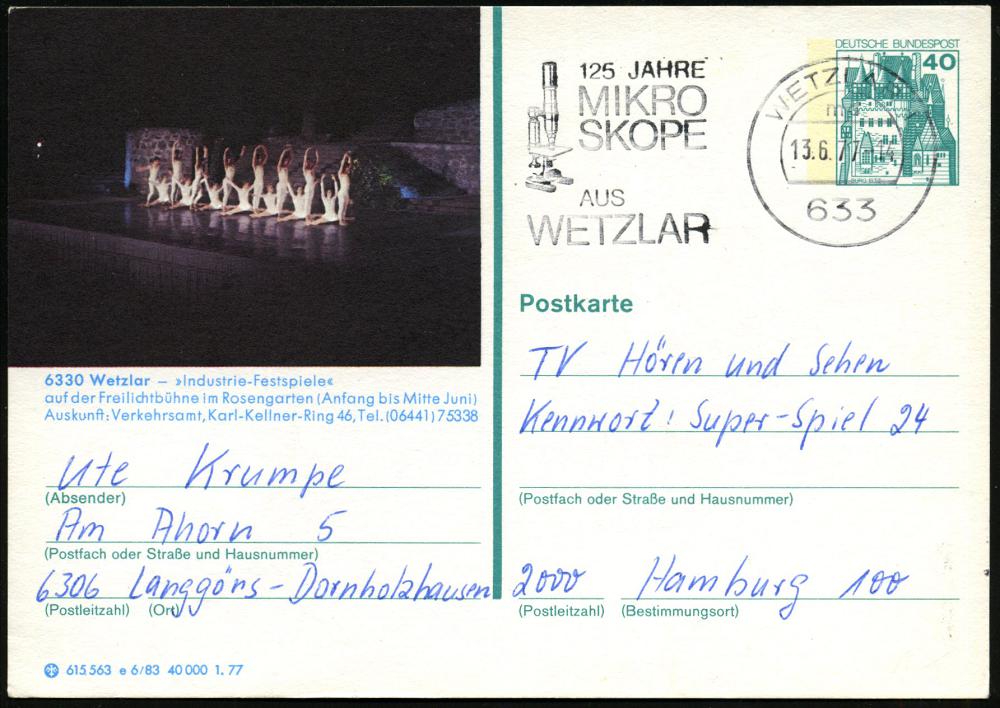 125 JAHRE
MIKRO
SKOPE
AUS
WETZLAR
DEUTSCHE BUNDESPOST
40
WETZLAR
13.6.77-14
633
Postkarte
TV Hören und Sehen
Kennwort: Super-Spiel 24
(Postfach oder Straße und Hausnummer)
2000 Hamburg 100
(Postleitzahl) (Bestimmungsort)
6330 Wetzlar – »Industrie-Festspiele«
auf der Freilichtbühne im Rosengarten (Anfang bis Mitte Juni)
Auskunft: Verkehrsamt, Karl-Kellner-Ring 46, Tel. (06441) 75338
Ute Krumpe
(Absender)
Am Ahorn 5
(Postfach oder Straße und Hausnummer)
6306 Langgöns-Dornholzhausen
(Postleitzahl) (Ort)
615 563 e 6/83 40 000 1.77